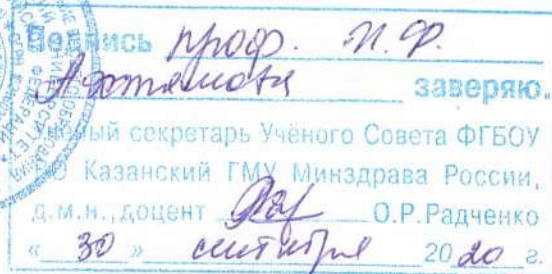 Подпись проф. И.Ф.
Ахтямова заверяю.
Учёный секретарь Учёного Совета ФГБОУ
ВО Казанский ГМУ Минздрава России,
д.м.н., доцент О.Р.Радченко
« 30 » сентября 2020 г.